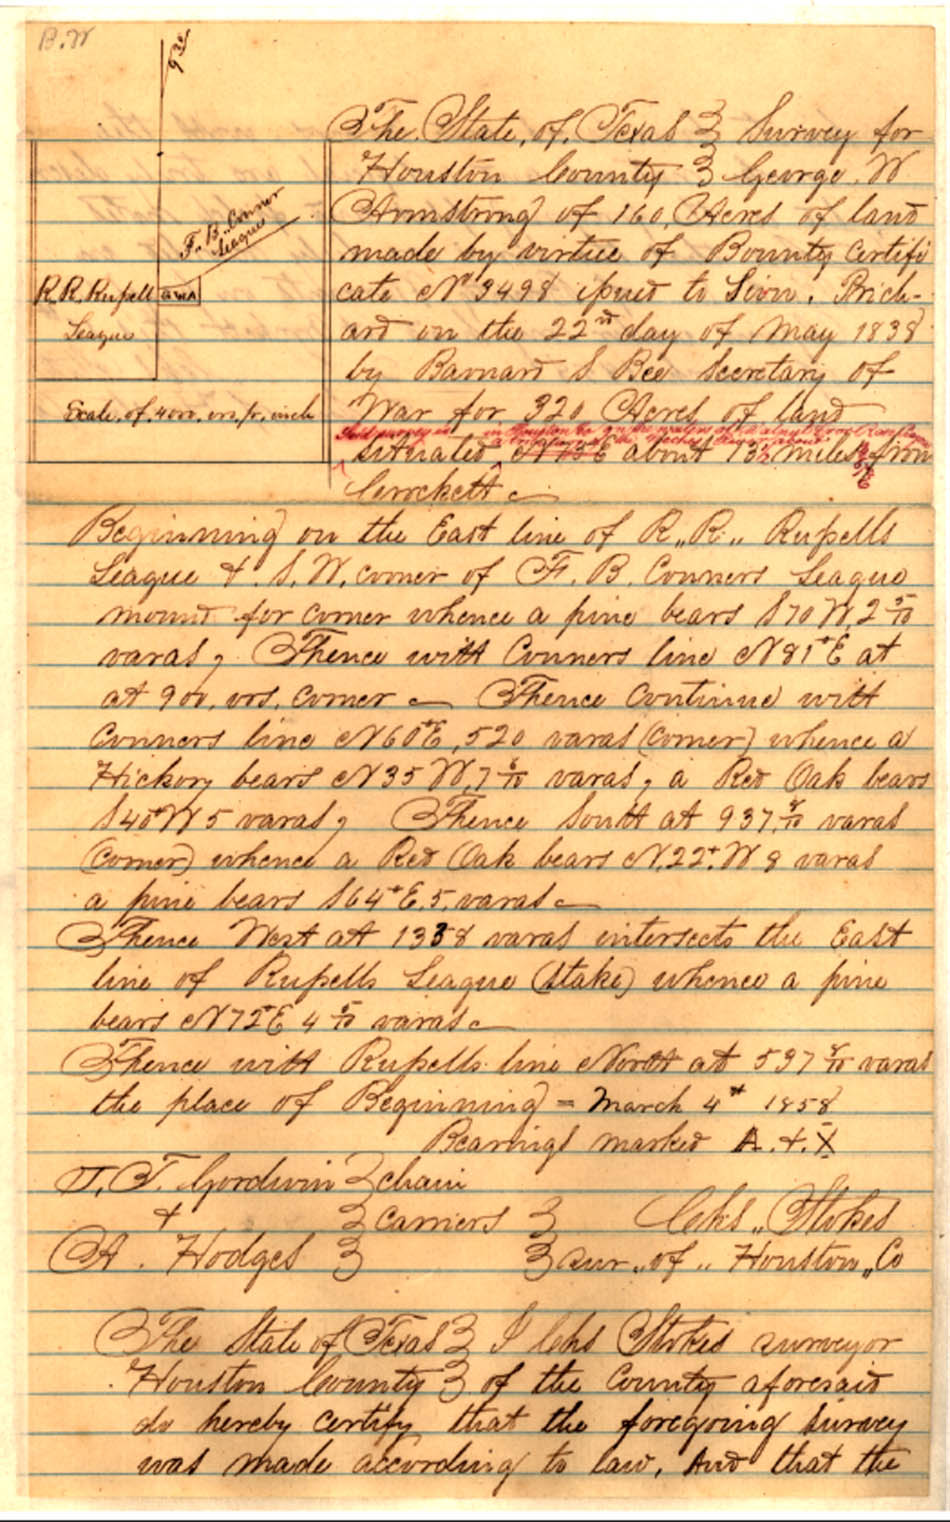 B.W
930
F. B. Conner
League
R. R. Russell GWA
League
Scale. of. 4000. vrs. pr. inch
The. State. of. Texas } Survey for
Houston County } George. W
Armstrong of 160, Acres of land
made by virtue of Bounty Certifi
cate No 3498 issued to Sion. Brich-
ard on the 22nd day of May 1838
by Barnard S Bee Secretary of
War for 320 Acres of land
Said survey is in Houston Co on the waters of
the Neches River about
situated N 73 E about 13½ miles from
Crockett
Beginning on the East line of R,, R,, Russells
League & S. W. corner of F. B. Conners League
mound for corner whence a pine bears S 70 W, 2 5/10
varas, Thence with Conners line N 81° E at
at 900, vrs, corner Thence Continue with
Conners line N 60° E, 520 varas (corner) whence a
Hickory bears N 35 W, 7 8/10 varas, a Red Oak bears
S 40° W 5 varas, Thence South at 937 8/10 varas
(corner) whence a Red Oak bears N. 22°. W 8 varas
a pine bears S 64° E. 5. varas
Thence West at 1338 varas intersects the East
line of Russells League (stake) whence a pine
bears N 72° E 4 5/10 varas
Thence with Russells line North at 537 8/10 varas
the place of Beginning = March 4th 1858
Bearings marked A. & X
J. T. Gordwin } chain
& } carriers } Chs ,, Stokes
A. Hodges } } sur ,, of ,, Houston ,, Co
The State of Texas } I Chs Stokes surveyor
Houston County } of the County aforesaid
do hereby certify that the foregoing survey
was made according to law, And that the